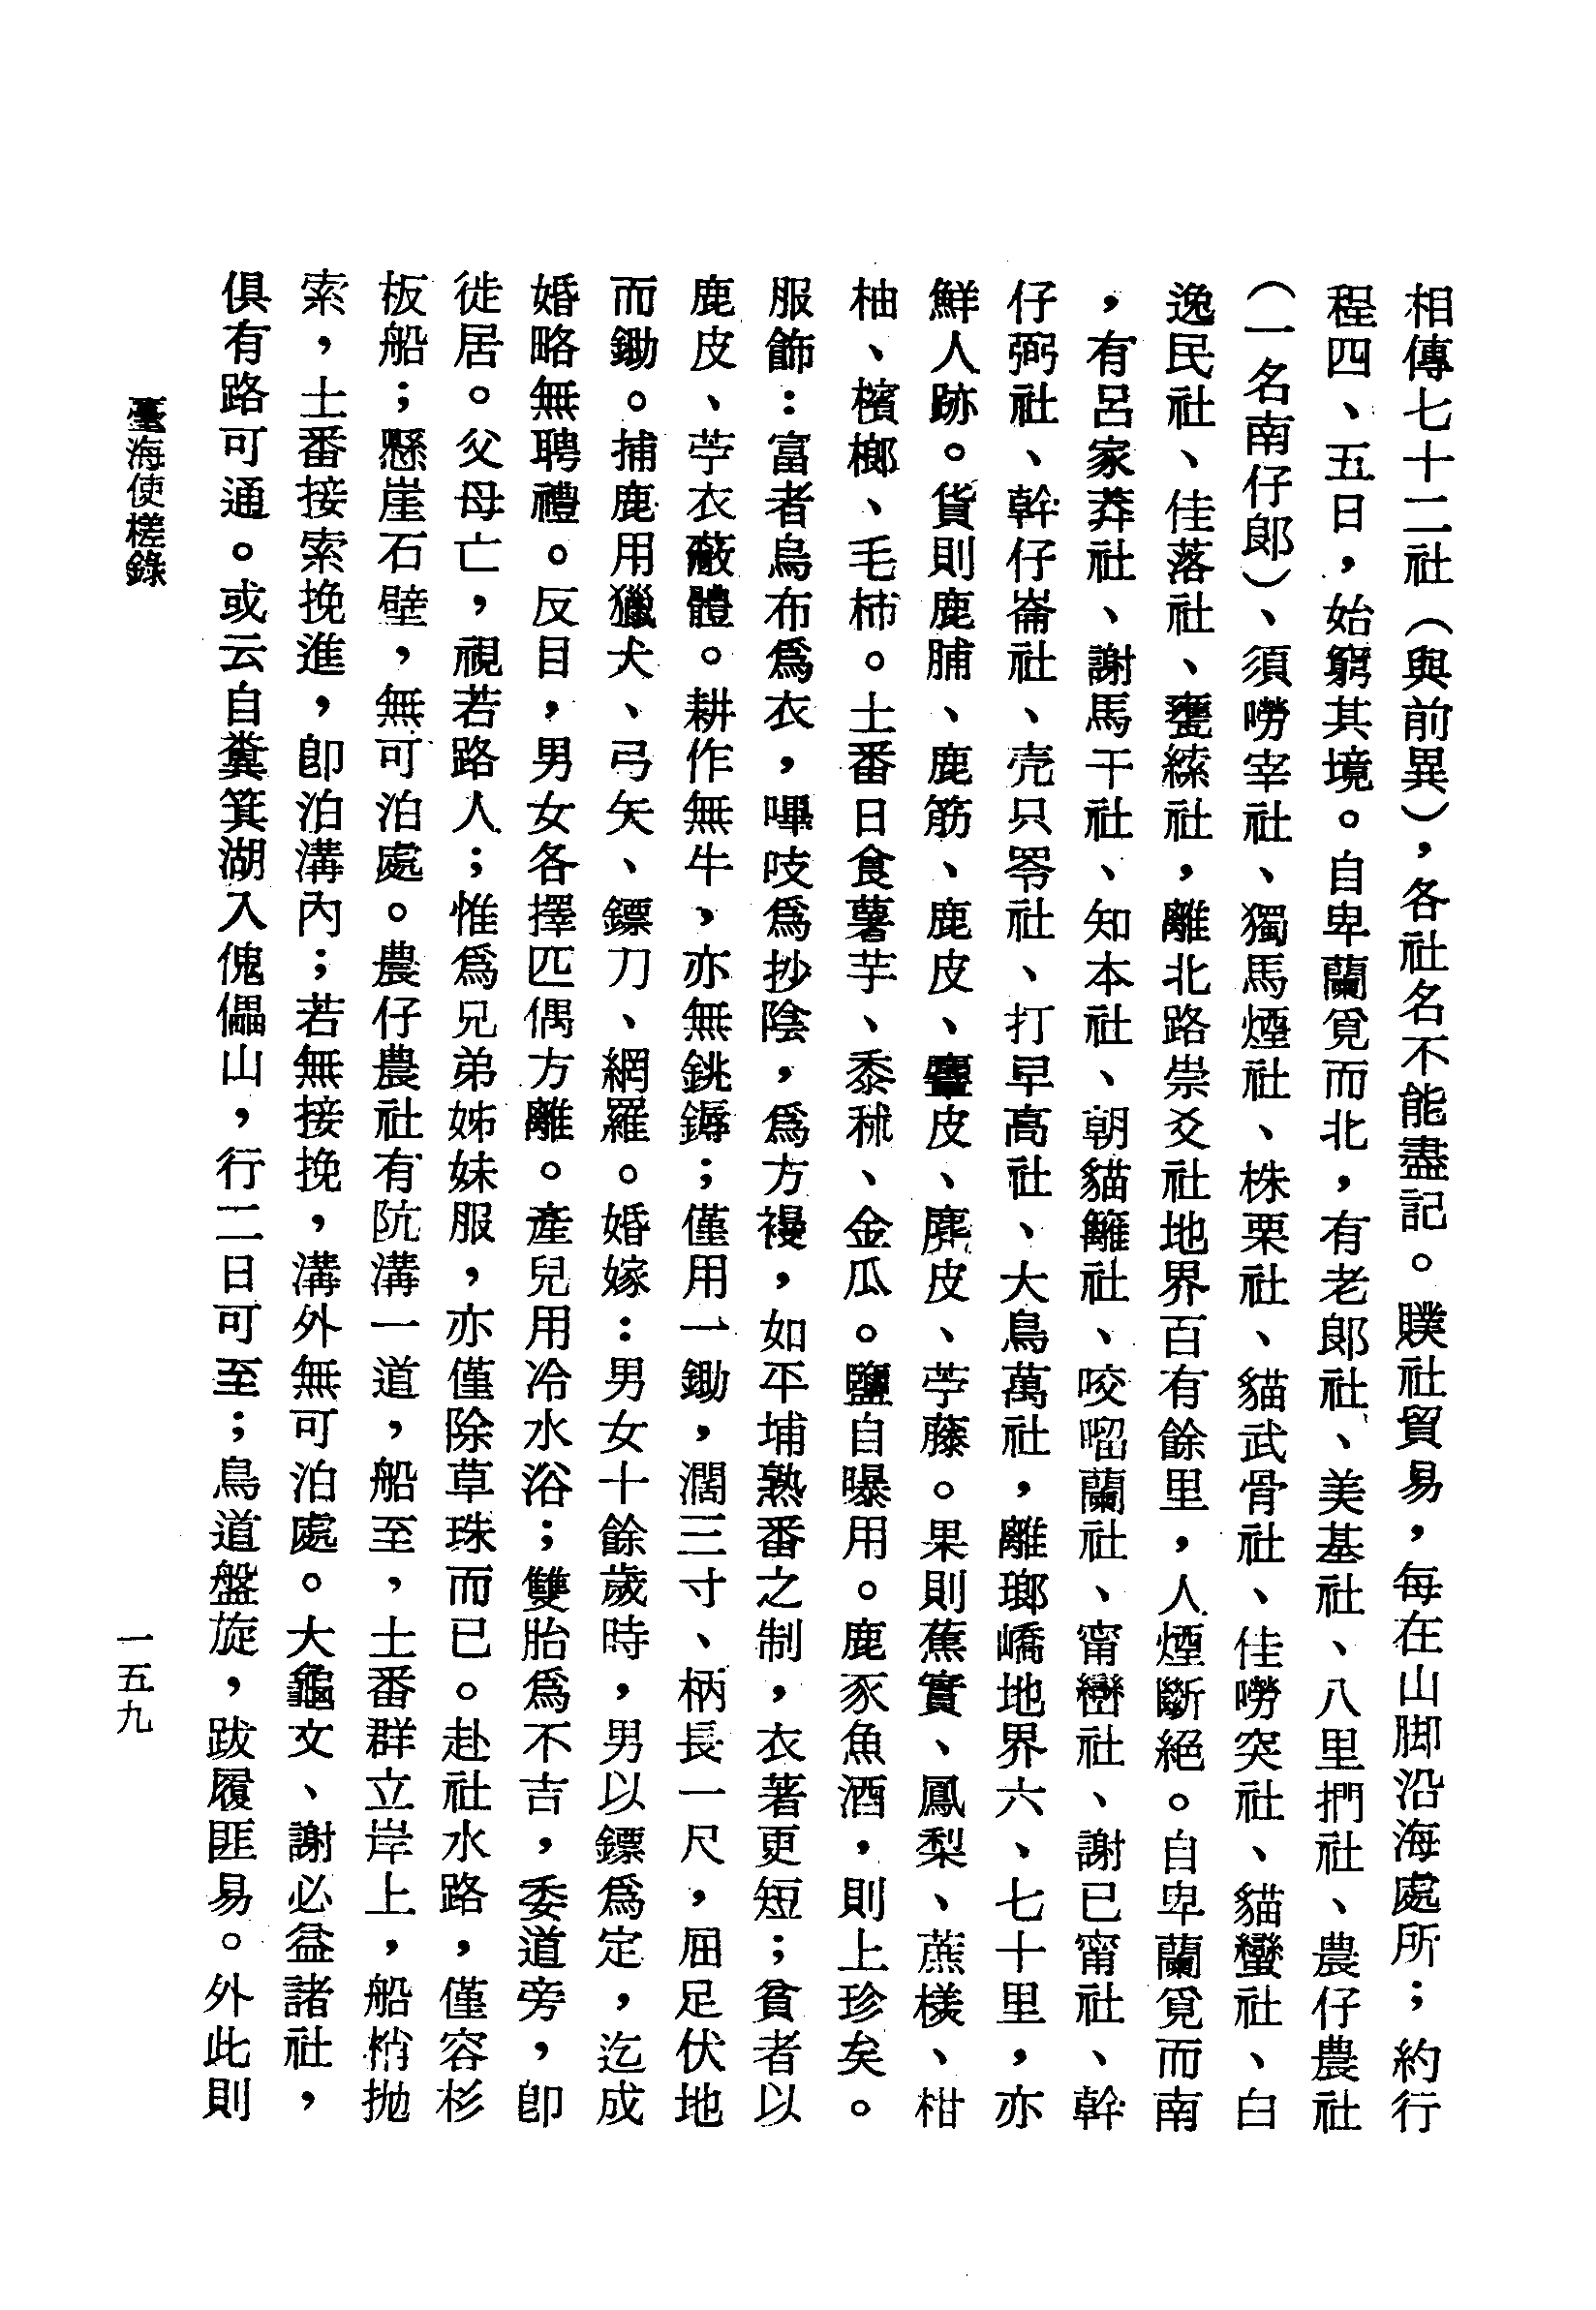 相傳七十二社（與前異），各社名不能盡記。贌社貿易，每在山脚沿海處所；約行
程四、五日，始窮其境。自卑蘭覓而北，有老郎社、美基社、八里捫社、農仔農社
（一名南仔郎）、須嘮宰社、獨馬煙社、株栗社、貓武骨社、佳嘮突社、貓蠻社、白
逸民社、佳落社、甕縤社，離北路崇爻社地界百有餘里，人煙斷絕。自卑蘭覓而南
，有呂家莽社、謝馬干社、知本社、朝貓籬社、咬㗂蘭社、甯巒社、謝已甯社、幹
仔弼社、幹仔崙社、壳只䍥社、打早高社、大鳥萬社，離瑯嶠地界六、七十里，亦
鮮人跡。貨則鹿脯、鹿筋、鹿皮、麞皮、麂皮、苧藤。果則蕉實、鳳梨、蔗檨、柑
柚、檳榔、毛柿。土番日食薯芋、黍秫、金瓜。鹽自曝用。鹿豕魚酒，則上珍矣。
服飾：富者烏布爲衣，嗶吱爲抄陰，爲方褸，如平埔熟番之制，衣著更短；貧者以
鹿皮、苧衣蔽體。耕作無牛，亦無銚鎒；僅用一鋤，濶三寸、柄長一尺，屈足伏地
而鋤。捕鹿用獵犬、弓矢、鏢刀、網羅。婚嫁：男女十餘歲時，男以鏢爲定，迄成
婚略無聘禮。反目，男女各擇匹偶方離。產兒用冷水浴；雙胎爲不吉，委道旁，卽
徙居。父母亡，視若路人；惟爲兄弟姊妹服，亦僅除草珠而已。赴社水路，僅容杉
板船；懸崖石壁，無可泊處。農仔農社有阬溝一道，船至，土番群立岸上，船梢拋
索，土番接索挽進，卽泊溝內；若無接挽，溝外無可泊處。大龜文、謝必益諸社，
俱有路可通。或云自糞箕湖入傀儡山，行二日可至；鳥道盤旋，跋履匪易。外此則
臺海使槎錄
一五九